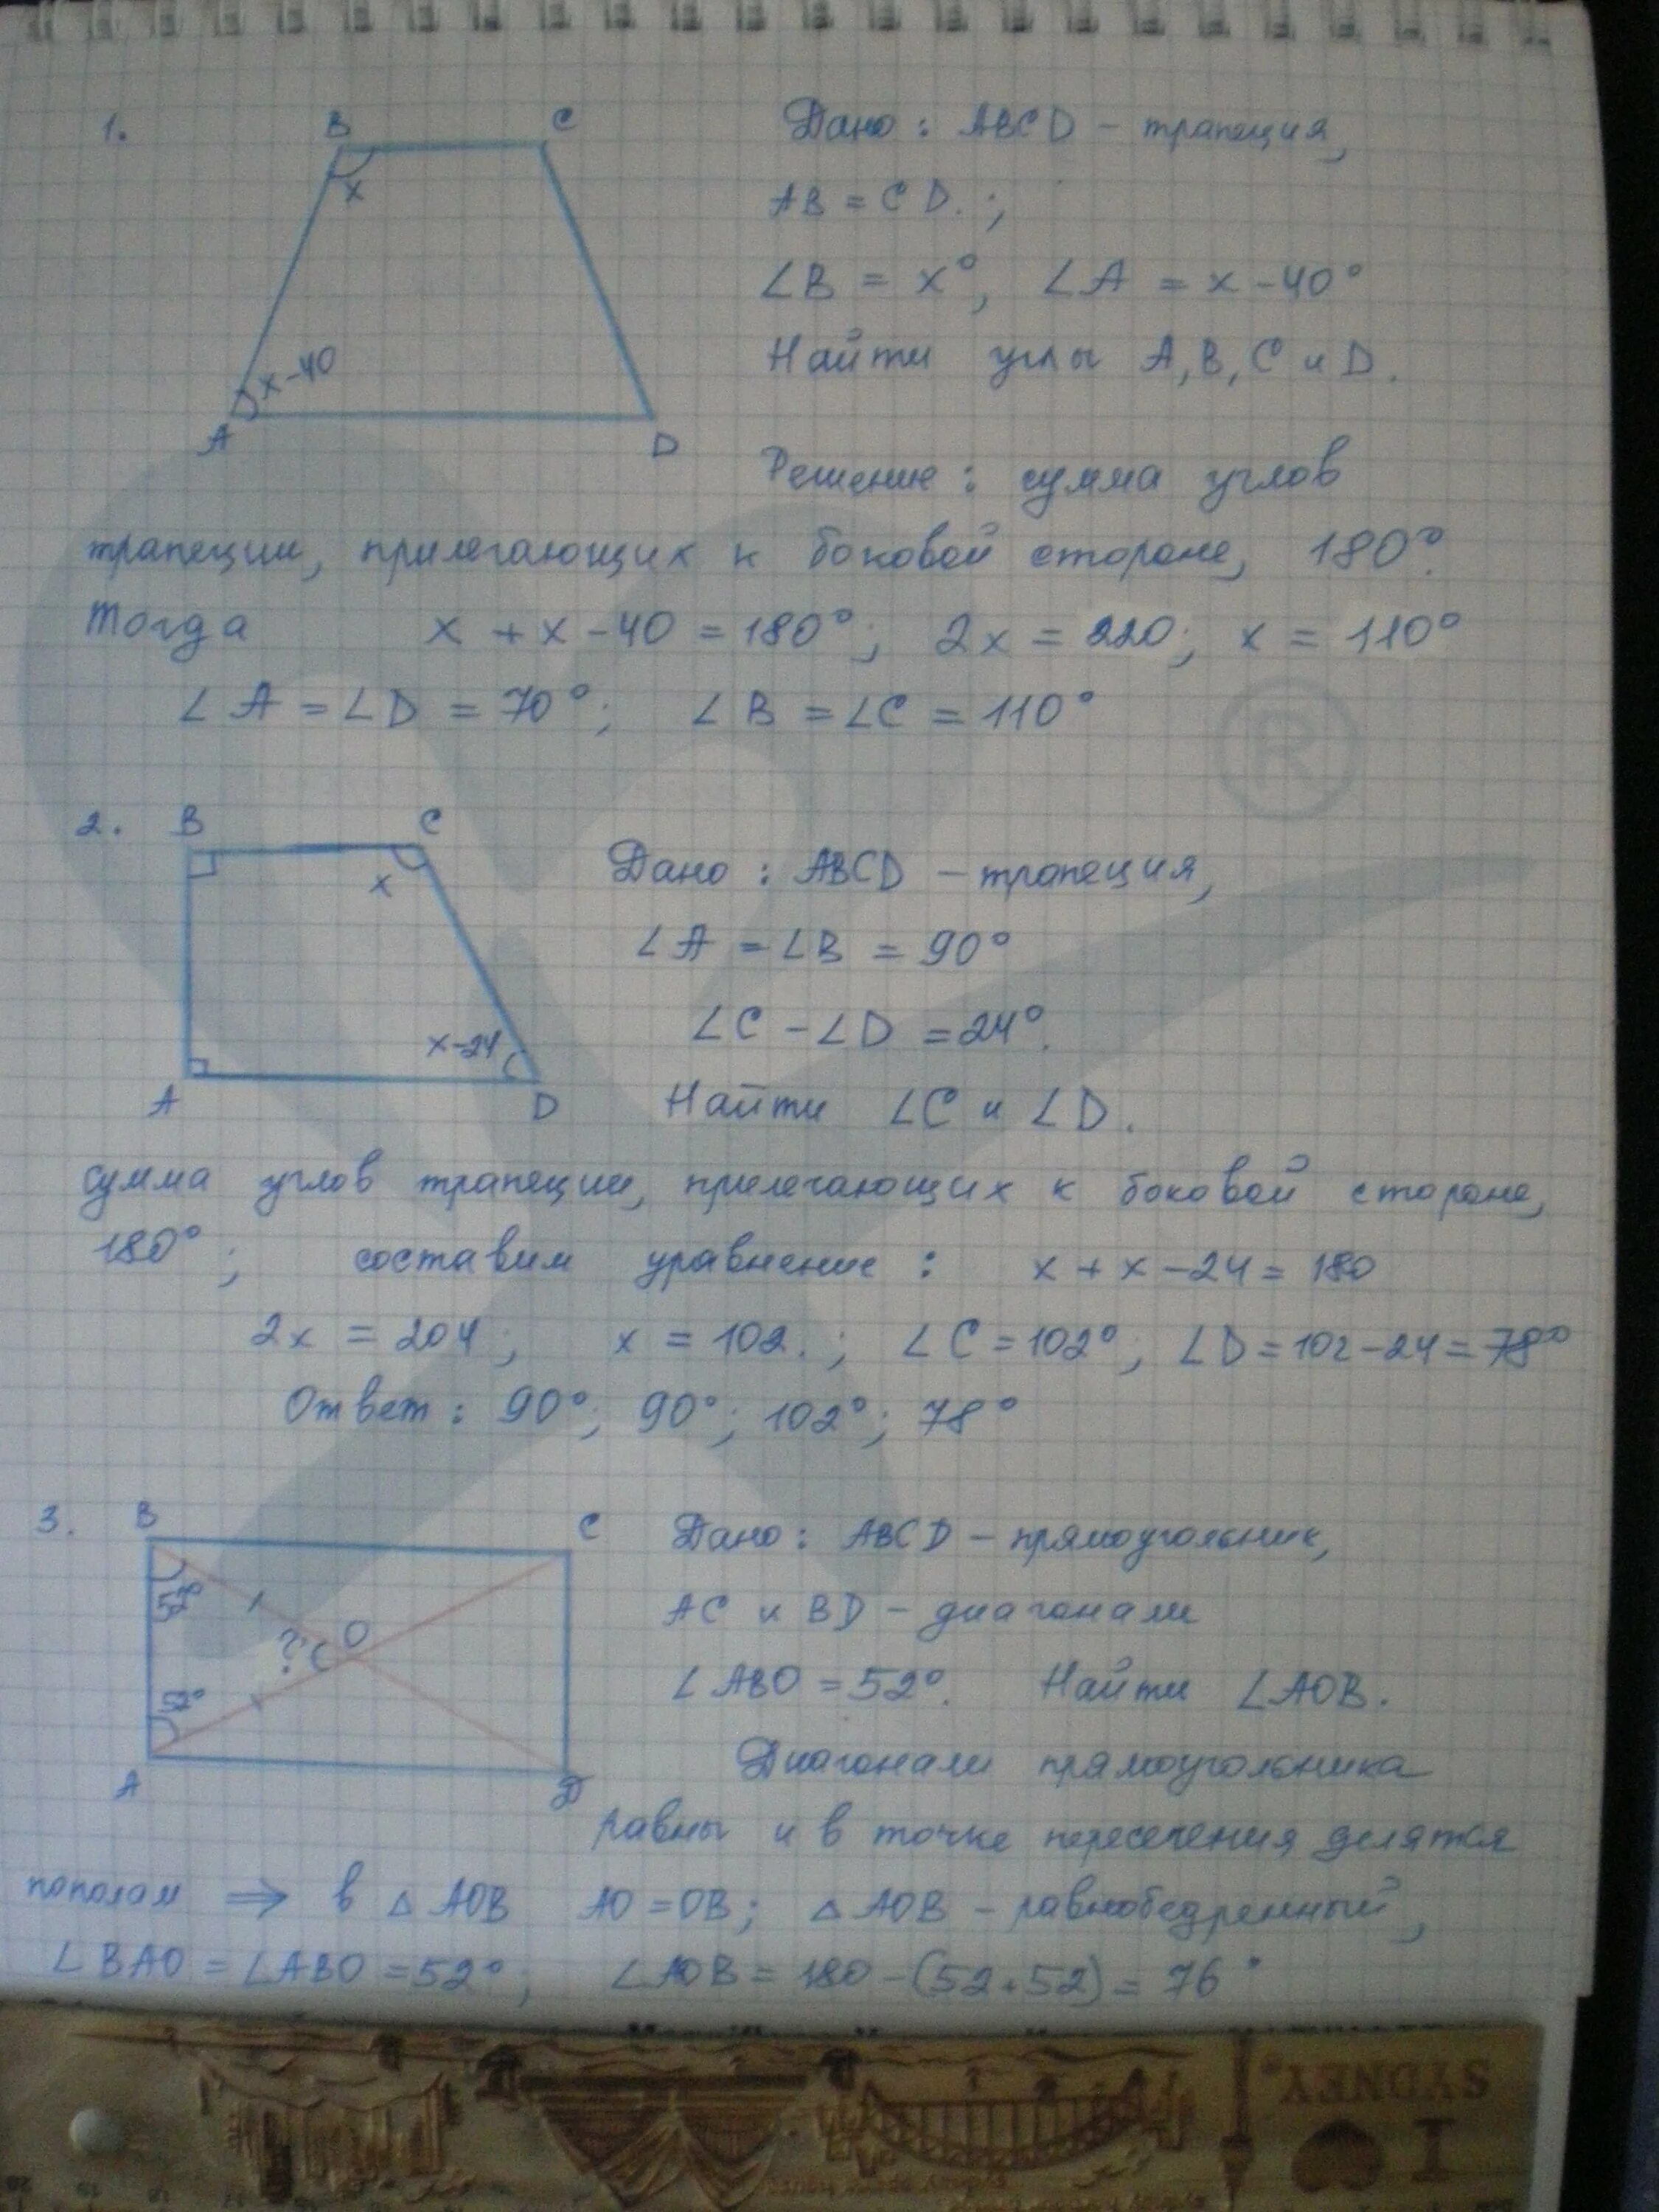 1. B C
x
x-40
A D
Дано: ABCD - трапеция,
AB = CD.;
∠B = x°, ∠A = x-40°
Найти углы A, B, C и D.
Решение: сумма углов
трапеции, прилегающих к боковой стороне, 180°.
Тогда x + x - 40 = 180°; 2x = 220; x = 110°
∠A = ∠D = 70°; ∠B = ∠C = 110°
®
2. B C
x
x-24
A D
Дано: ABCD - трапеция,
∠A = ∠B = 90°
∠C - ∠D = 24°.
Найти ∠C и ∠D.
Сумма углов трапеции, прилегающих к боковой стороне,
180°; составим уравнение: x + x - 24 = 180
2x = 204; x = 102.; ∠C = 102°; ∠D = 102 - 24 = 78°
Ответ: 90°; 90°; 102°; 78°
3. B C
52°
? O
52°
A D
Дано: ABCD - прямоугольник,
AC и BD - диагонали
∠ABO = 52°. Найти ∠AOB.
Диагонали прямоугольника
равны и в точке пересечения делятся
пополам ⇒ в △AOB AO = OB; △AOB - равнобедренный,
∠BAO = ∠ABO = 52°; ∠AOB = 180 - (52+52) = 76°
I
SYDNEY